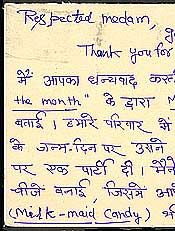 Respected medam,
Thank you for
में आपका धन्यवाद करती
the month" के द्वारा M
बताई । हमारे परिवार में
के जन्म-दिन पर उसने
पर एक पार्टी दी । मैंने
चीजें बनाई, जिसमें
(Milk-maid Candy) भी